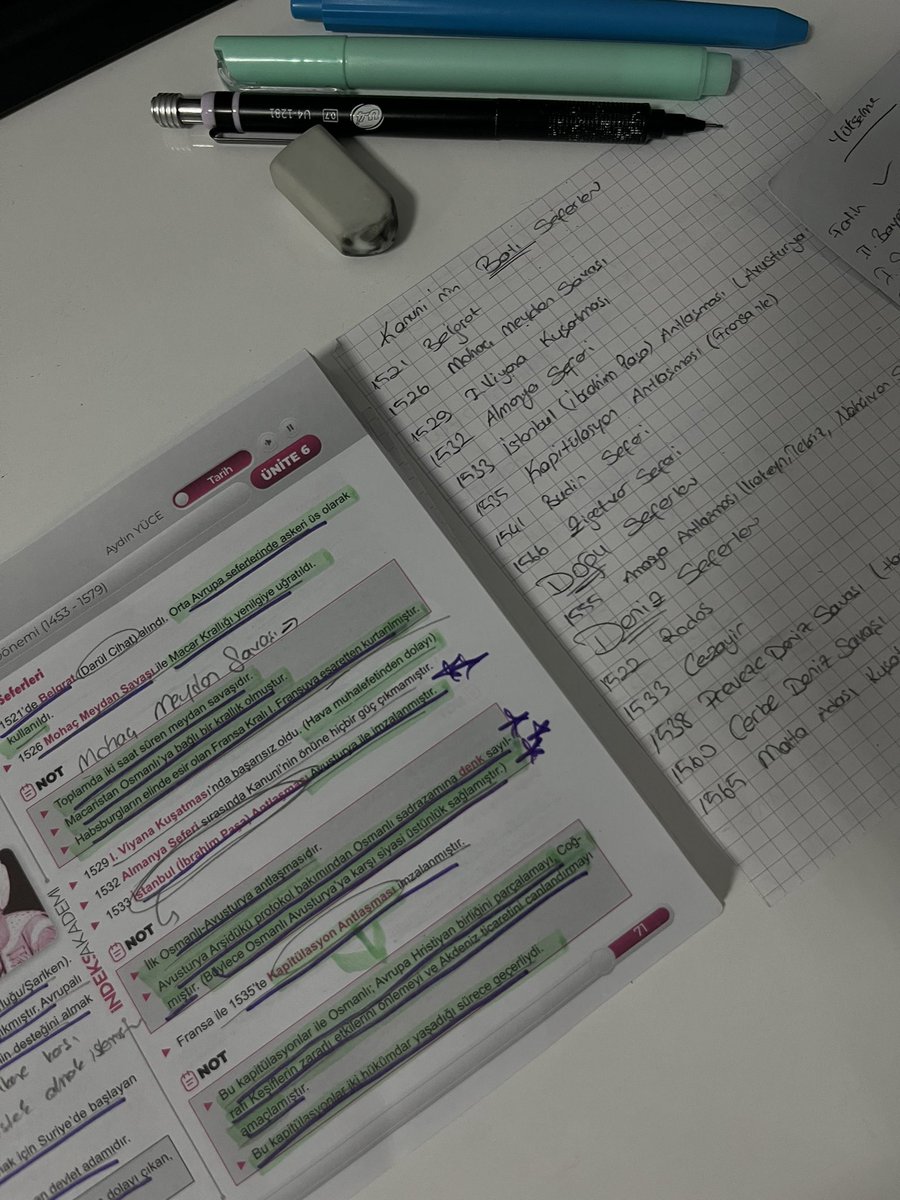 U4-1281 0.7
Yükselme
Fatih ✓
II. Baye
Kanuni'nin Batı Seferleri
1521 Belgrat
1526 Mohaç Meydan Savaşı
1529 I. Viyana Kuşatması
1532 Almanya Seferi
1533 İstanbul (İbrahim Paşa) Antlaşması (Avusturya
1535 Kapitülasyon Antlaşması (Fransa ile)
1541 Budin Seferi
1566 Zigetvar Seferi
Doğu Seferleri
1555 Amasya Antlaşması
Deniz Seferleri
1522 Rodos
1533 Cezayir
1538 Preveze Deniz Savaşı
1560 Cerbe Deniz Savaşı
1565 Malta Adası
Tarih
ÜNİTE 6
Aydın YÜCE
önemi (1453 - 1579)
Seferleri
1521'de Belgrat (Darül Cihat) alındı. Orta Avrupa seferlerinde askeri üs olarak
kullanıldı.
1526 Mohaç Meydan Savaşı ile Macar Krallığı yenilgiye uğratıldı.
NOT Mohaç Meydan Savaşı
Toplamda iki saat süren meydan savaşıdır.
Macaristan Osmanlı'ya bağlı bir krallık olmuştur.
Habsburgların elinde esir olan Fransa Kralı I. Fransuva esaretten kurtarılmıştır.
1529 I. Viyana Kuşatması'nda başarısız oldu. (Hava muhalefetinden dolayı)
1532 Almanya Seferi sırasında Kanuni'nin önüne hiçbir güç çıkmamıştır.
1533 İstanbul (İbrahim Paşa) Antlaşması Avusturya ile imzalanmıştır.
NOT
İlk Osmanlı-Avusturya antlaşmasıdır.
Avusturya Arşidükü protokol bakımından Osmanlı sadrazamına denk sayıl-
mıştır. (Böylece Osmanlı Avusturya'ya karşı siyasi üstünlük sağlamıştır.)
Fransa ile 1535'te Kapitülasyon Antlaşması imzalanmıştır.
NOT
Bu kapitülasyonlar ile Osmanlı; Avrupa Hristiyan birliğini parçalamayı, Coğ-
rafi Keşiflerin zararlı etkilerini önlemeyi ve Akdeniz ticaretini canlandırmayı
amaçlamıştır.
Bu kapitülasyonlar iki hükümdar yaşadığı sürece geçerliydi.
71
İNDEKS AKADEMİ
luğu/Sarıken).
ıkmıştır. Avrupalı
nin desteğini almak
mak için Suriye'de başlayan
an devlet adamıdır.
dolayı çıkan,